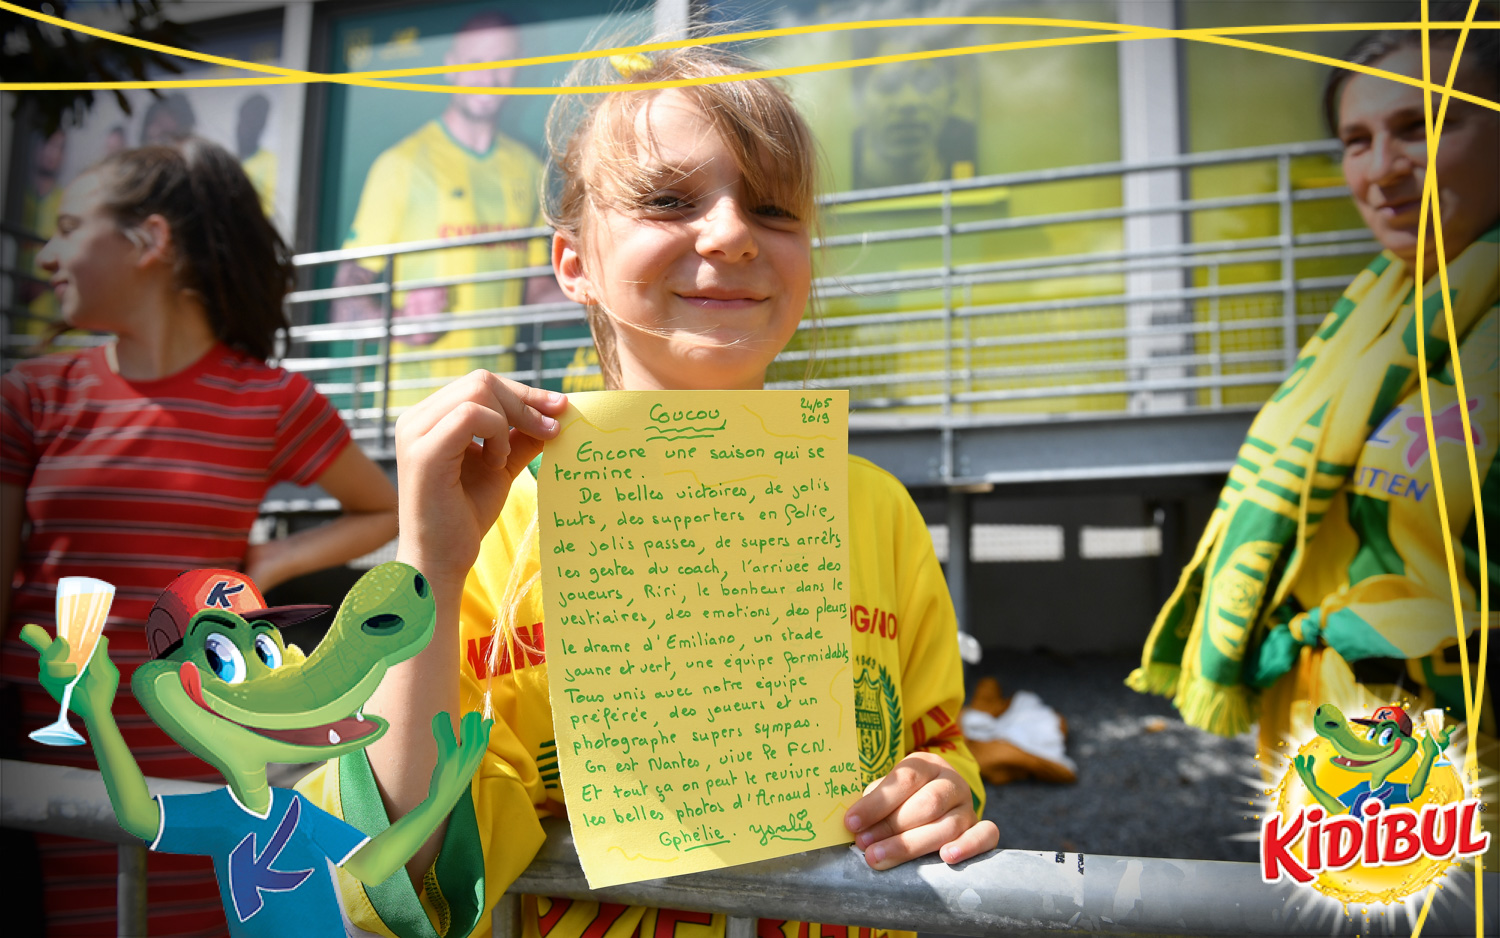 Coucou
24/05
2019
Encore une saison qui se
termine.
De belles victoires, de jolis
buts, des supporters en folie,
de jolis passes, de supers arrêts
les gestes du coach, l'arrivée des
joueurs, Riri, le bonheur dans le
vestiaires, des emotions, des pleurs
le drame d'Emiliano, un stade
jaune et vert, une équipe formidable
Tous unis avec notre équipe
préférée, des joueurs et un
photographe supers sympas.
On est Nantes, vive le FCN.
Et tout ça on peut le revivre avec
les belles photos d'Arnaud. Merci
Ophélie. Ysalis
1943
NANTES
K
K
K
KiDiBUL